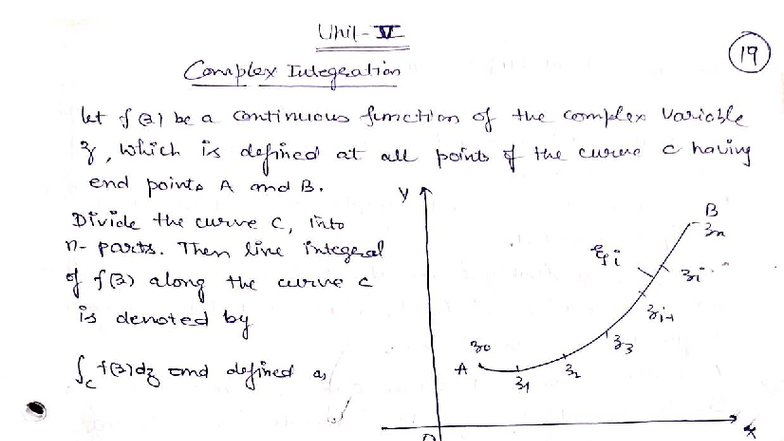 Unit-V
19
Complex Integration
Let f(z) be a continuous function of the complex variable
z, which is defined at all points of the curve c having
end points A and B.
Divide the curve C, into
n-parts. Then line integral
of f(z) along the curve c
is denoted by
∫c f(z)dz and defined as
Y
B
zn
ξi
zi
zi-1
z3
z2
z1
z0
A
O
X